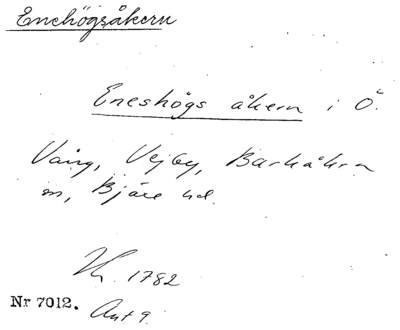 Enehögsåkern
Eneshögs åkern i Ö.
Vång, Vejby, Barkåkra
sn, Bjäre hd.
Nr 7012.
1782
Akt 9.